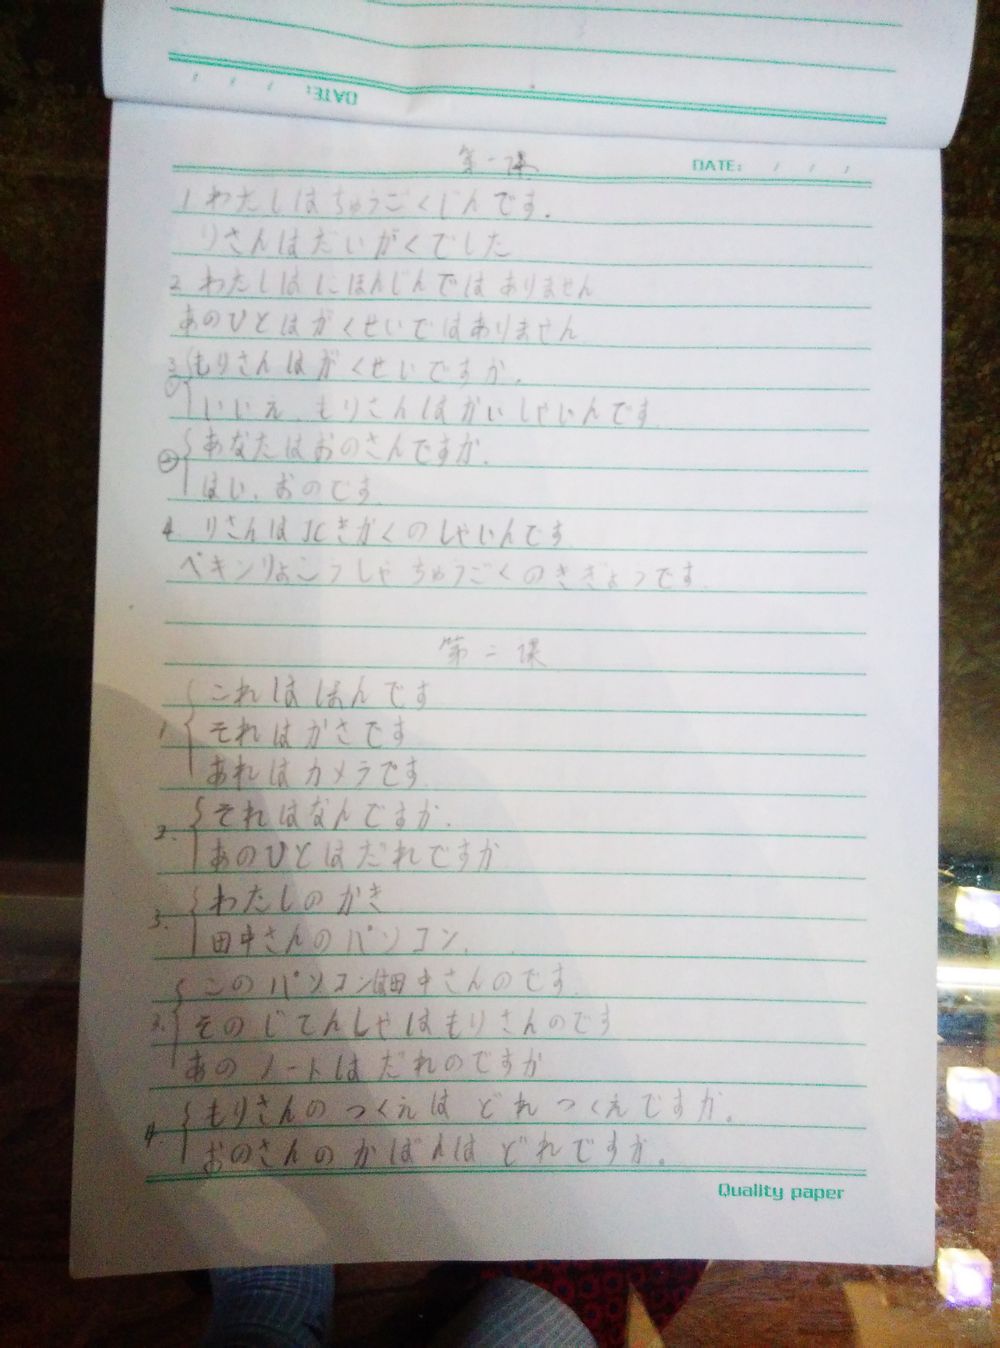 DATE:
第一课
DATE:
1 わたしはちゅうごくじんです.
りさんはだいがくでした
2 わたしはにほんじんではありません
あのひとはがくせいではありません
3 もりさんはがくせいですか.
① いいえ、もりさんはかいしゃいんです
あなたはおのさんですか.
② はい、おのです.
4 りさんはJCきかくのしゃいんです
ペキンりょこうしゃちゅうごくのきぎょうです.
第二课
これはほんです
1. それはかさです
あれはカメラです.
それはなんですか.
2. あのひとはだれですか
わたしのかき
3. 田中さんのパソコン.
このパソコンは田中さんのです.
3. そのじてんしゃはもりさんのです
あのノートはだれのですか
もりさんのつくえはどれつくえですか。
4. おのさんのかばんはどれですか。
Quality paper